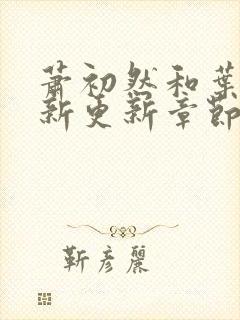 萧初然和葉
新更新章節
靳彦麗